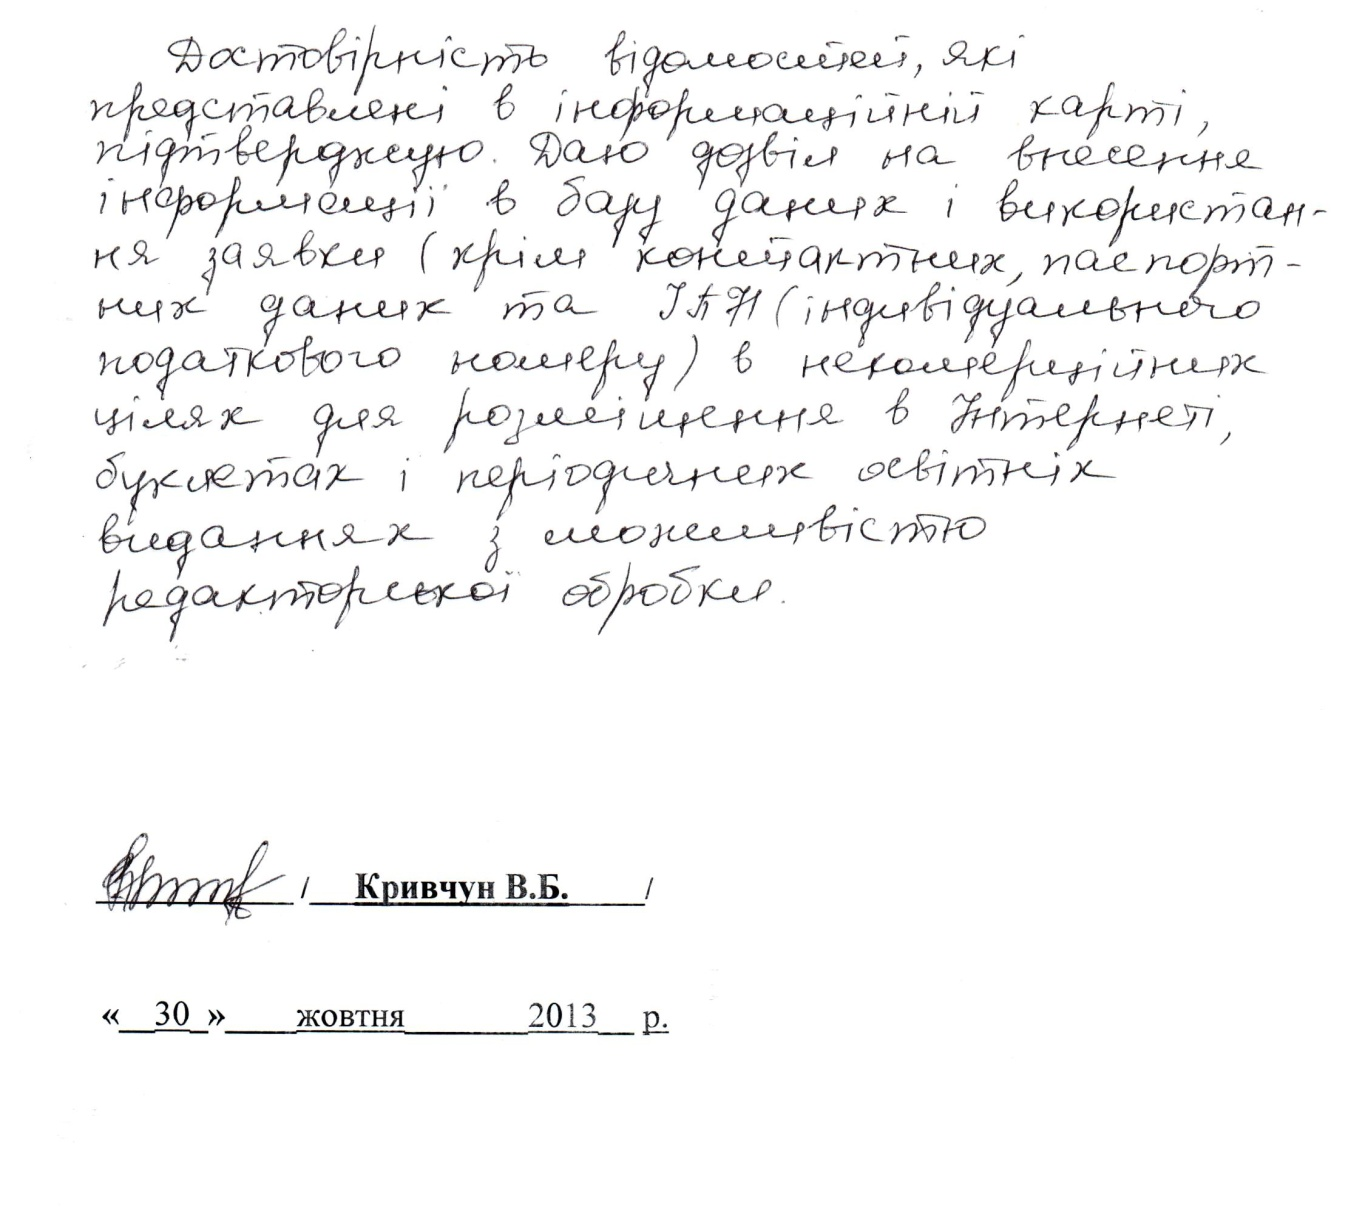 Достовірність відомостей, які
представлені в інформаційній карті,
підтверджую. Даю дозвіл на внесення
інформації в базу даних і використан-
ня заявки (крім контактних, паспорт-
них даних та ІПН (індивідуального
податкового номеру) в некомерційних
цілях для розміщення в Інтернеті,
буклетах і періодичних освітніх
виданнях з можливістю
редакторської обробки.
/ Кривчун В.Б. /
« 30 » жовтня 2013 р.